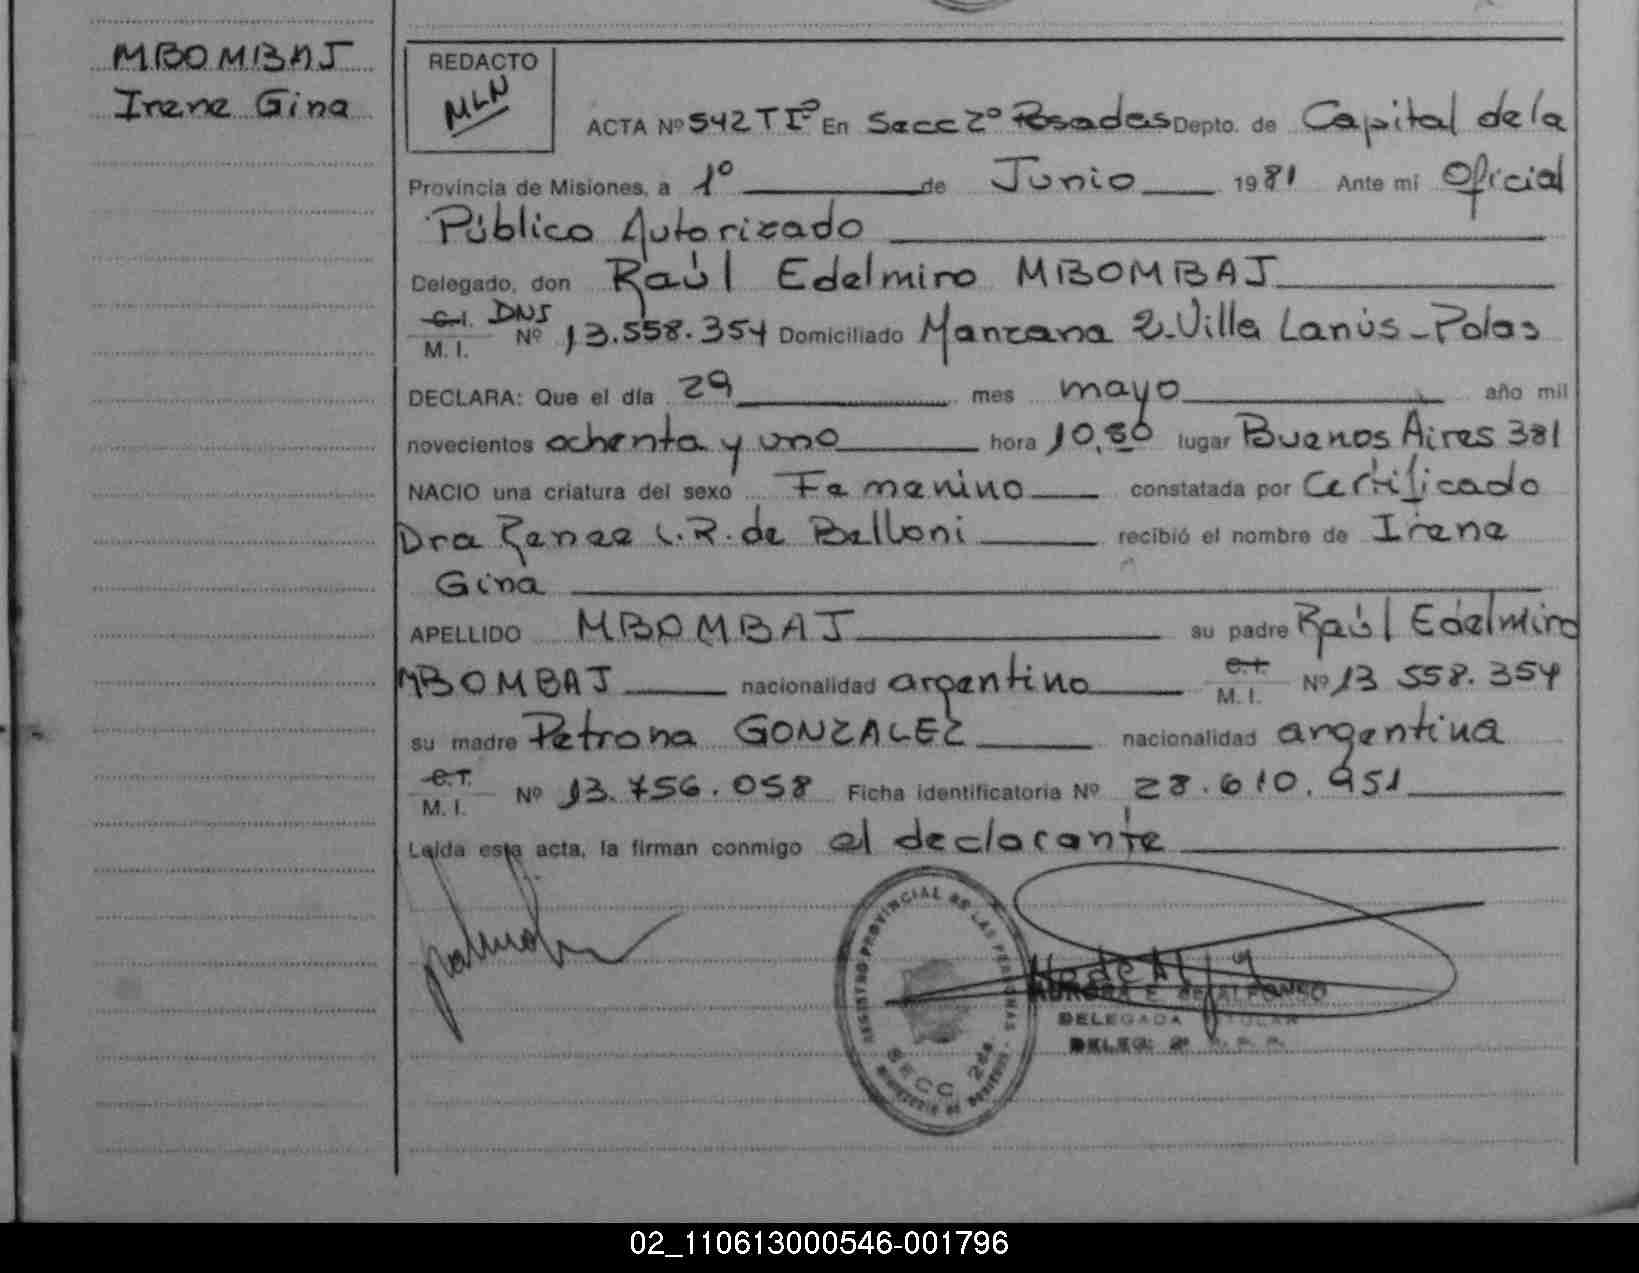 MBOMBAJ
Irene Gina
REDACTO
MLN
ACTA Nº 542 T Iº En Secc 2º Posadas Depto. de Capital de la
Provincia de Misiones, a 1º de Junio 1981 Ante mi Oficial
Público Autorizado
Delegado, don Raúl Edelmiro MBOMBAJ
C.I. DNI
M. I. Nº 13.558.354 Domiciliado Manzana 2-Villa Lanús-Pdas
DECLARA: Que el día 29 mes mayo año mil
novecientos ochenta y uno hora 10,30 lugar Buenos Aires 381
NACIO una criatura del sexo Femenino constatada por Certificado
Dra Renee L.R. de Belloni recibió el nombre de Irene
Gina
APELLIDO MBOMBAJ su padre Raúl Edelmiro
MBOMBAJ nacionalidad argentino C.I. M. I. Nº 13 558.354
su madre Petrona GONZALEZ nacionalidad argentina
C.I.
M. I. Nº 13.756.058 Ficha identificatoria Nº 28.610.951
Leída esta acta, la firman conmigo el declarante
REGISTRO PROVINCIAL DE LAS PERSONAS
SECC 2da.
AURORA E. DE ALFONSO
DELEGADA TITULAR
DELEG. 2ª
02_110613000546-001796